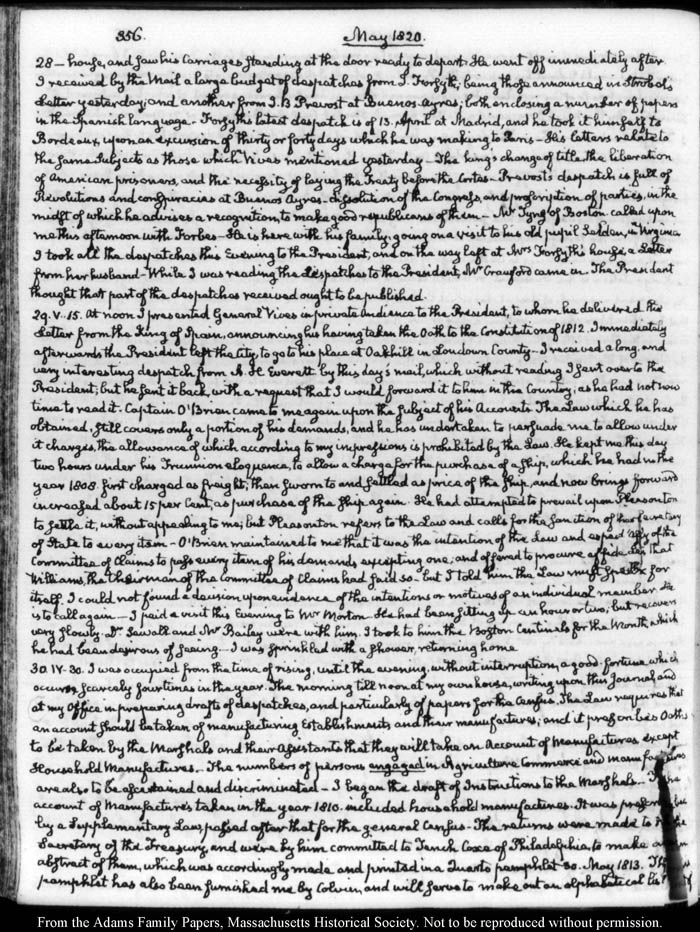 356. May 1820.
28 — house, and saw his Carriages standing at the door ready to depart. He went off immediately after
I received by the Mail a large budget of despatches from J. Forsyth; being those announced in Strobel's
Letter yesterday; and another from J. B Prevost at Buenos-Ayres; both enclosing a number of papers
in the Spanish language. Forsyth's latest despatch is of 13. April at Madrid, and he took it himself to
Bordeaux, upon an excursion of thirty or forty days which he was making to Paris — His letters relate to
the same subjects as those which Vives mentioned yesterday — The king's change of title, the liberation
of American prisoners, and the necessity of laying the Treaty before the Cortes. Prevost's despatch is full of
Revolutions and conspiracies at Buenos Ayres. dissolution of the Congress, and proscription of parties, in the
midst of which he advises a recognition, to make good republicans of them — Mr Tyng of Boston called upon
me this afternoon with Forbes — He is here with his family, going on a visit to his old pupil Selden, in Virginia
I took all the despatches this Evening to the President; and on the way left at Mrs Forsyth's house, a Letter
from her husband — While I was reading the despatches to the President, Mr Crawford came in. The President
thought that part of the despatches received ought to be published.
29. V. 15. At noon I presented General Vives in private audience to the President, to whom he delivered the
Letter from the King of Spain, announcing his having taken the Oath to the Constitution of 1812. Immediately
afterwards the President left the City, to go to his place at Oakhill in Loudown County — I received a long, and
very interesting despatch from A. H. Everett by this day's mail, which without reading I sent over to the
President; but he sent it back, with a request that I would forward it to him in the Country; as he had not now
time to read it. Captain O'Brien came to me again upon the subject of his Accounts. The Law which he has
obtained, still covers only a portion of his demands, and he has undertaken to persuade me to allow under
it charges, the allowance of which according to my impressions is prohibited by the Law. He kept me this day
two hours under his Trunnion eloquence, to allow a charge for the purchase of a ship, which he had in the
year 1808 first charged as freight; then sworn to and settled as price of the ship, and now brings forward
increased about 15 per Cent, as purchase of the ship again. He had attempted to prevail upon Pleasonton
to settle it, without appealing to me; but Pleasonton refers to the Law and calls for the sanction of the Secretary
of State to every item — O'Brien maintained to me that it was the intention of the Law and especially of the
Committee of Claims to pass every item of his demands excepting one; and offered to procure affidavits that
Williams, the Chairman of the Committee of Claims had said so — but I told him the Law must speak for
itself. I could not found a decision upon evidence of the intentions or motives of an individual member. He
is to call again — I paid a visit this Evening to Mr Morton. He had been sitting up an hour or two; but recovers
very slowly. Dr Sewall and Mr Bailey were with him. I took to him the Boston Centinels for the Month, which
he had been desirous of seeing — I was sprinkled with a shower, returning home
30. IV. 30. I was occupied from the time of rising, until the evening, without interruption; a good fortune which
occurs scarcely four times in the year. The morning till noon at my own house, writing upon this Journal and
at my Office in preparing drafts of despatches, and particularly of papers for the Census. The Law requires that
an account should be taken of manufacturing Establishments and their manufactures; and it prescribes Oaths
to be taken by the Marshals and their Assistants that they will take an Account of Manufactures except
Household Manufactures. The numbers of persons engaged in Agriculture Commerce and manufactures
are also to be ascertained and discriminated — I began the draft of Instructions to the Marshals — The
account of Manufactures taken in the year 1810. included household manufactures. It was prescribed
by a Supplementary Law, passed after that for the general Census — The returns were made to the
Secretary of the Treasury, and were by him committed to Tench Coxe of Philadelphia, to make an
abstract of them, which was accordingly made and printed in a Quarto pamphlet 30. May 1813. This
pamphlet has also been furnished me by Colvin, and will serve to make out an alphabetical list
From the Adams Family Papers, Massachusetts Historical Society. Not to be reproduced without permission.